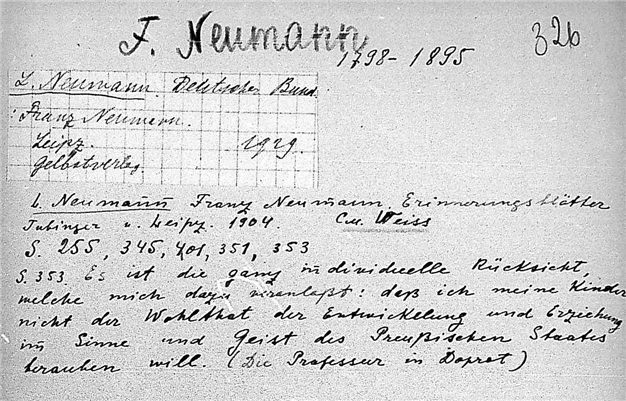 F. Neumann
1798-1895
326
L. Neumann. Deutscher Bund.
Franz Neumann.
Leipz. 1929.
Selbstverlag.
L. Neumann Franz Neumann, Erinnerungsblätter
Tubingen u. Leipz. 1904. См. Weiss
S. 255, 345, 401, 351, 353
S. 353. Es ist die ganz individuelle Rücksicht,
welche mich dazu veranlaßt: daß ich meine Kinder
nicht der Wohlthat der Entwickelung und Erziehung
im Sinne und Geist des Preußischen Staates
berauben will. (Die Professur in Dorpat)